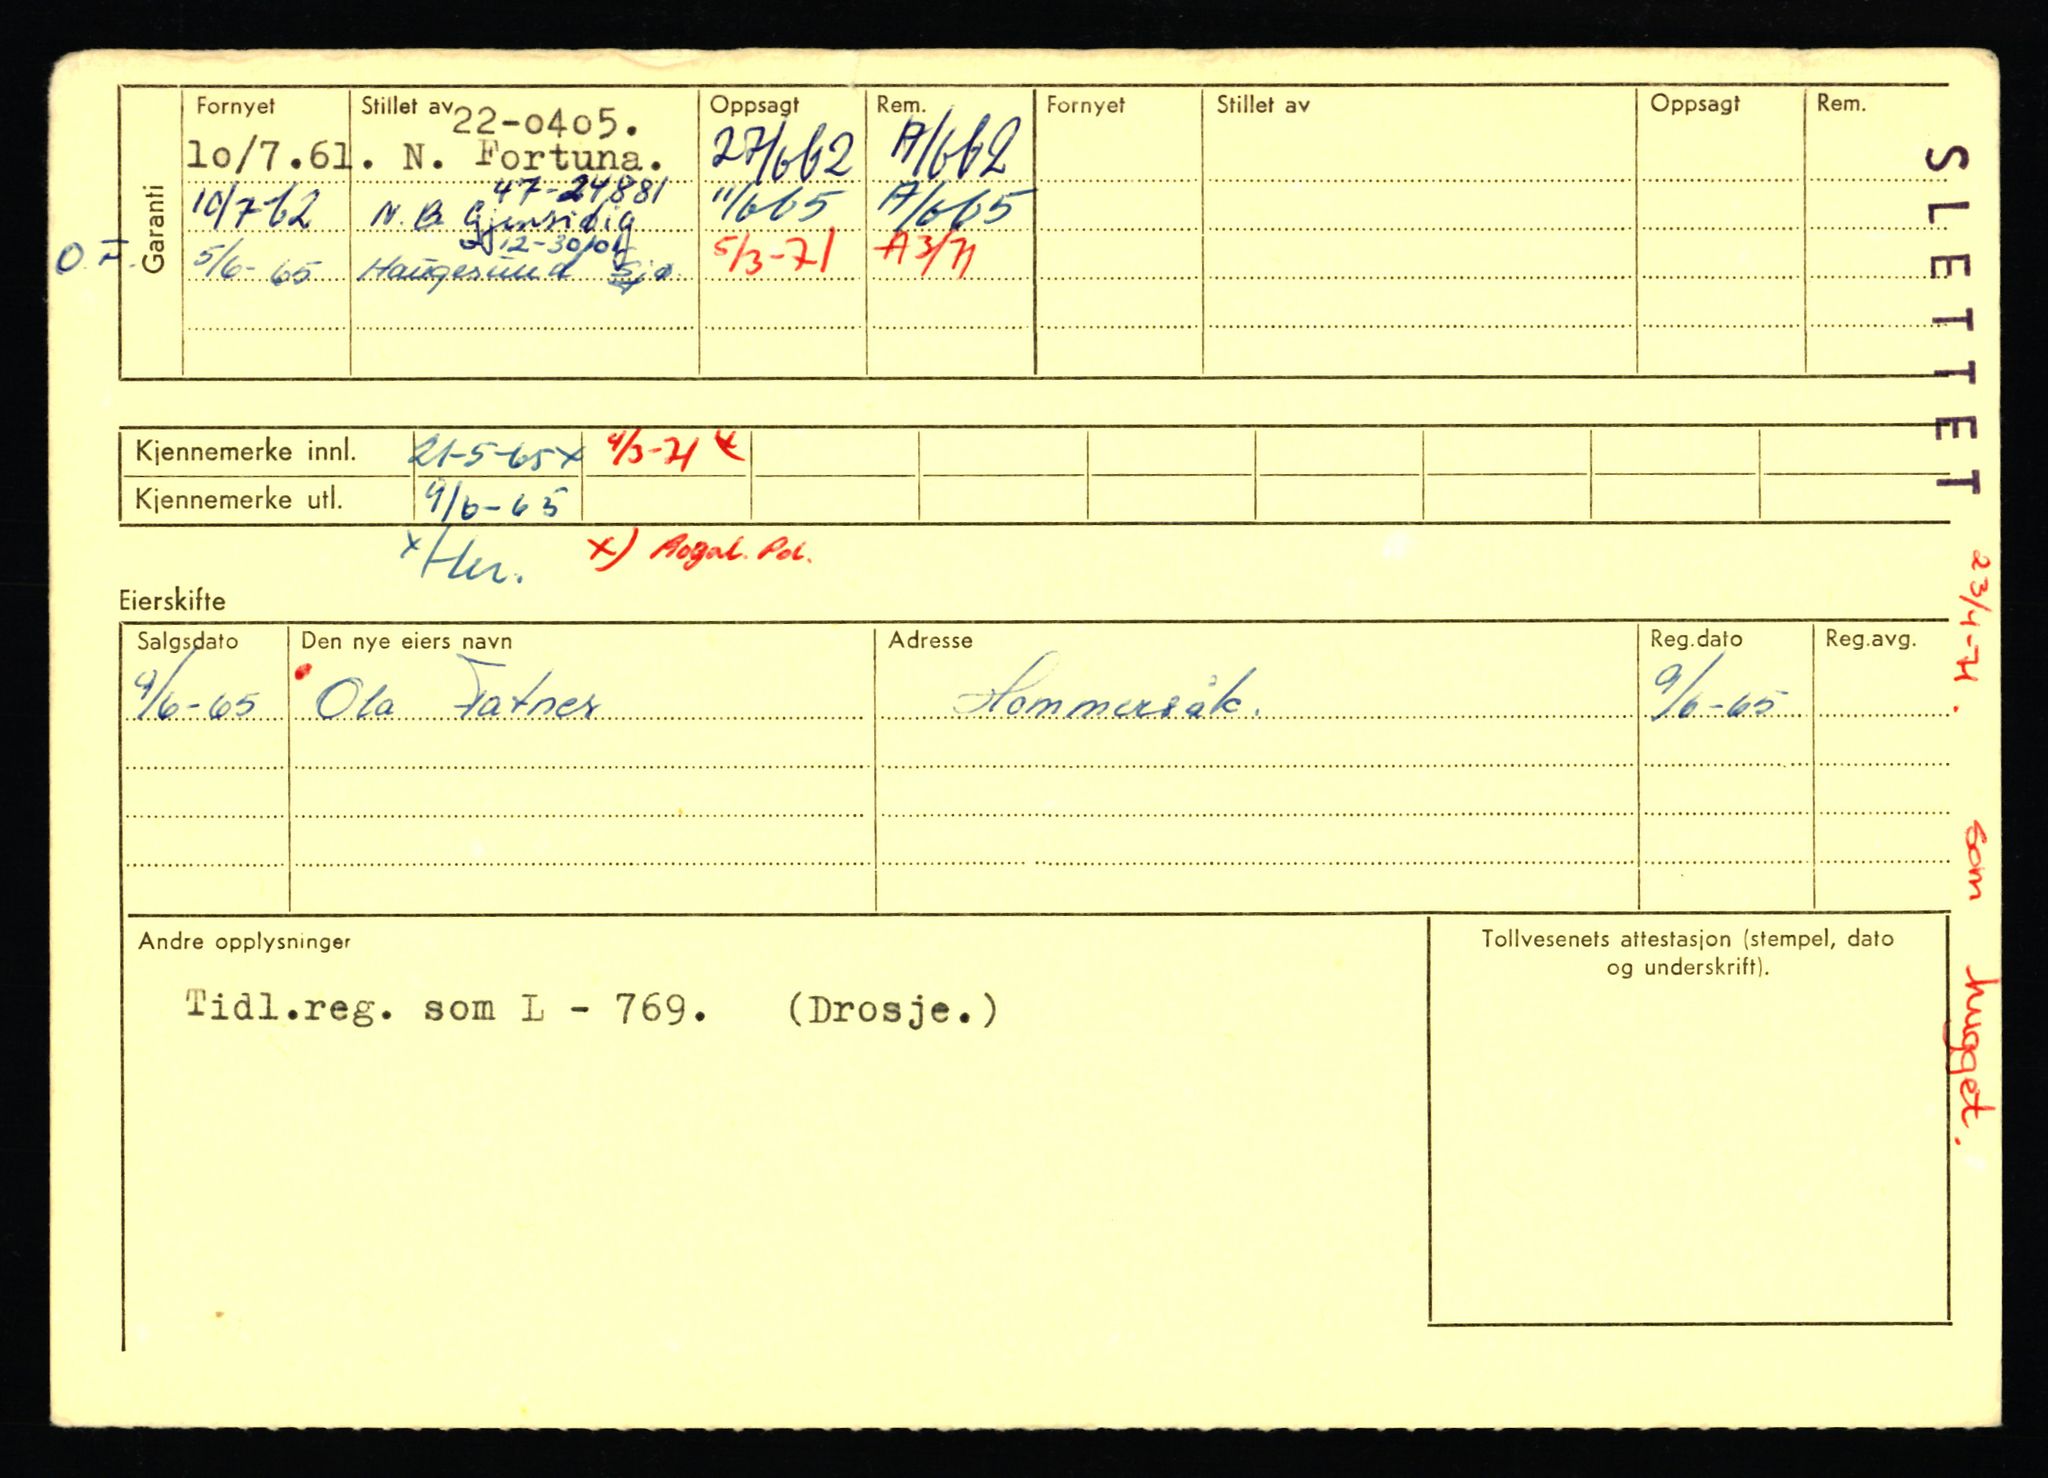 Garanti
Fornyet Stillet av Oppsagt Rem. Fornyet Stillet av Oppsagt Rem.
22-0405.
lo/7.61. N. Fortuna. 27/662 A/662
47-24881
10/7-62 N.B. Gjensidig 11/665 A/665
O.F. 5/6-65 Haugesund Sjø 5/3-71 A3/71
Kjennemerke innl. 21-5-65x 4/3-71 x
Kjennemerke utl. 9/6-65
x) Rogal. Pol.
Eierskifte
Salgsdato Den nye eiers navn Adresse Reg.dato Reg.avg.
9/6-65 Ola Hommersåk. 9/6-65
Andre opplysninger
Tidl.reg. som L - 769. (Drosje.)
Tollvesenets attestasjon (stempel, dato
og underskrift).
SLETTET 23/4-71. som hugget.